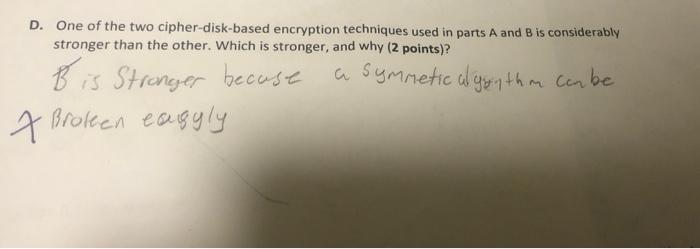 D. One of the two cipher-disk-based encryption techniques used in parts A and B is considerably
stronger than the other. Which is stronger, and why (2 points)?
B is Stronger becuse a Symmetic algorythm can be
Broken easyly